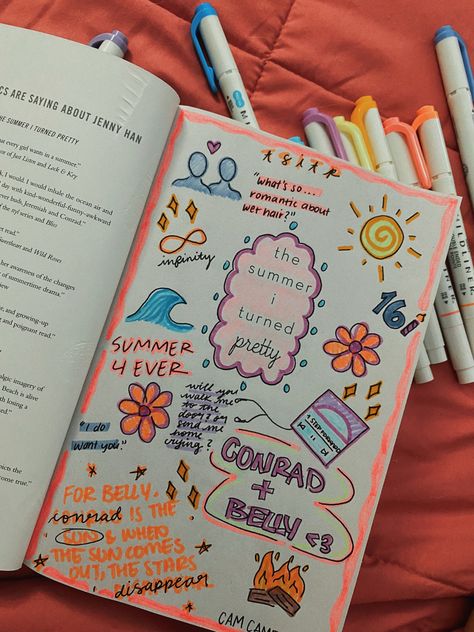 CS ARE SAYING ABOUT JENNY HAN
THE SUMMER I TURNED PRETTY
every girl wants in a summer."
of Just Listen and Lock & Key
I would inhale the ocean air and
day with kind-wonderful-funny-awkward
Jeremiah and Conrad."
series and Bliss
read."
and Wild Roses
her awareness of the changes
summertime drama."
and growing-up
and poignant read."
imagery of
Beach is alive
depicts the
come true."
tsitp
"what's so...
romantic about
wet hair?"
infinity
the
summer
i
turned
pretty
16
SUMMER
4 EVER
will you
walk me
to the
door? or
send me
home
crying?
"I do
want you."
CONRAD
+
BELLY <3
FOR BELLY.
conrad IS THE
SUN & WHEN
THE SUN COMES
OUT, THE STARS
disappear